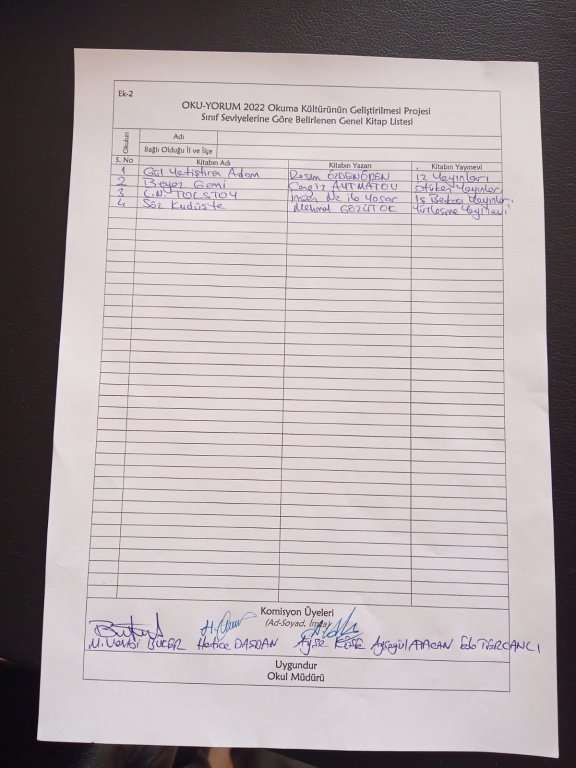 Ek-2
OKU-YORUM 2022 Okuma Kültürünün Geliştirilmesi Projesi
Sınıf Seviyelerine Göre Belirlenen Genel Kitap Listesi
Okulun
Adı
Bağlı Olduğu İl ve İlçe
S. No Kitabın Adı Kitabın Yazarı Kitabın Yayınevi
1 Gül Yetiştiren Adam Rasim ÖZDENÖREN İz Yayınları
2 Beyaz Gemi Cengiz AYTMATOV Ötüken Yayınları
3 L.N. TOLSTOY İnsan Ne ile Yaşar İş Bankası Yayınları
4 Söz Kudüs'te Mehmet Yayınevi
Komisyon Üyeleri
(Ad-Soyad, İmza)
Hatice DAŞDAN Ayşe KÖSE Ayşegül Eda TERCANCI
Uygundur
Okul Müdürü